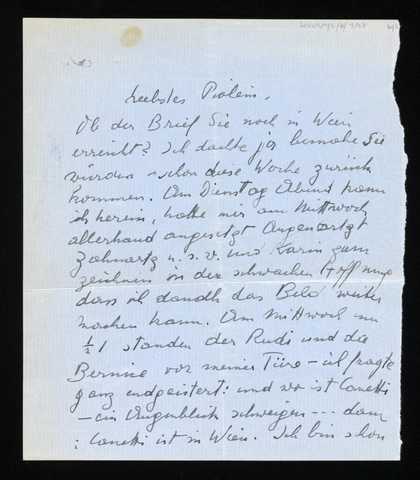 Liebstes Piolein,
Ob der Brief Sie noch in Wien
erreicht? Ich dachte ja beinahe Sie
würden schon diese Woche zurück
kommen. Am Dienstag Abend kam
ich herein, hatte mir am Mittwoch
allerhand angesetzt Augenartzt
Zahnartz u. s. v. und Karin zum
zeichnen in der schwachen Hoffnung
dass ich dandh das Bild weiter
machen kann. Am Mittwoch um
½ 1 standen der Rudi und die
Bernice vor meiner Türe – ich fragte
ganz endgeistert: und wo ist Canetti
– ein Augenblick schweigen --- dann
: Canetti ist in Wien. Ich bin schon